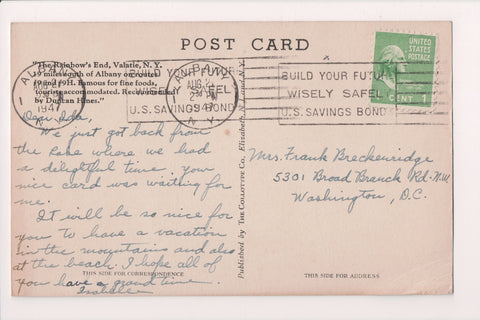 POST CARD
"The Rainbow's End, Valatie, N. Y.
19 miles south of Albany on routes
9 and 9H. Famous for fine foods,
tourists accommodated. Recommended
by Duncan Hines."
ALBANY
AUG 2
1947
N. Y.
BUILD YOUR FUTURE
WISELY SAFELY
U.S. SAVINGS BONDS
ALBANY
AUG 2
2 PM
1947
N. Y.
BUILD YOUR FUTU
WISELY SAFEL
U.S. SAVINGS BONDS
UNITED
STATES
POSTAGE
CENT 1
Dear Ida,
We just got back from
the Lake where we had
a delightful time, your
nice card was waiting for
me.
It will be so nice for
you to have a vacation
in the mountains and also
at the beach. I hope all of
you have a grand time.
Isabelle
THIS SIDE FOR CORRESPONDENCE
Published by The Collotype Co., Elizabeth, N. J. and N. Y.
Mrs. Frank Breckenridge
5301 Broad Branch Rd. N.W.
Washington, D.C.
THIS SIDE FOR ADDRESS